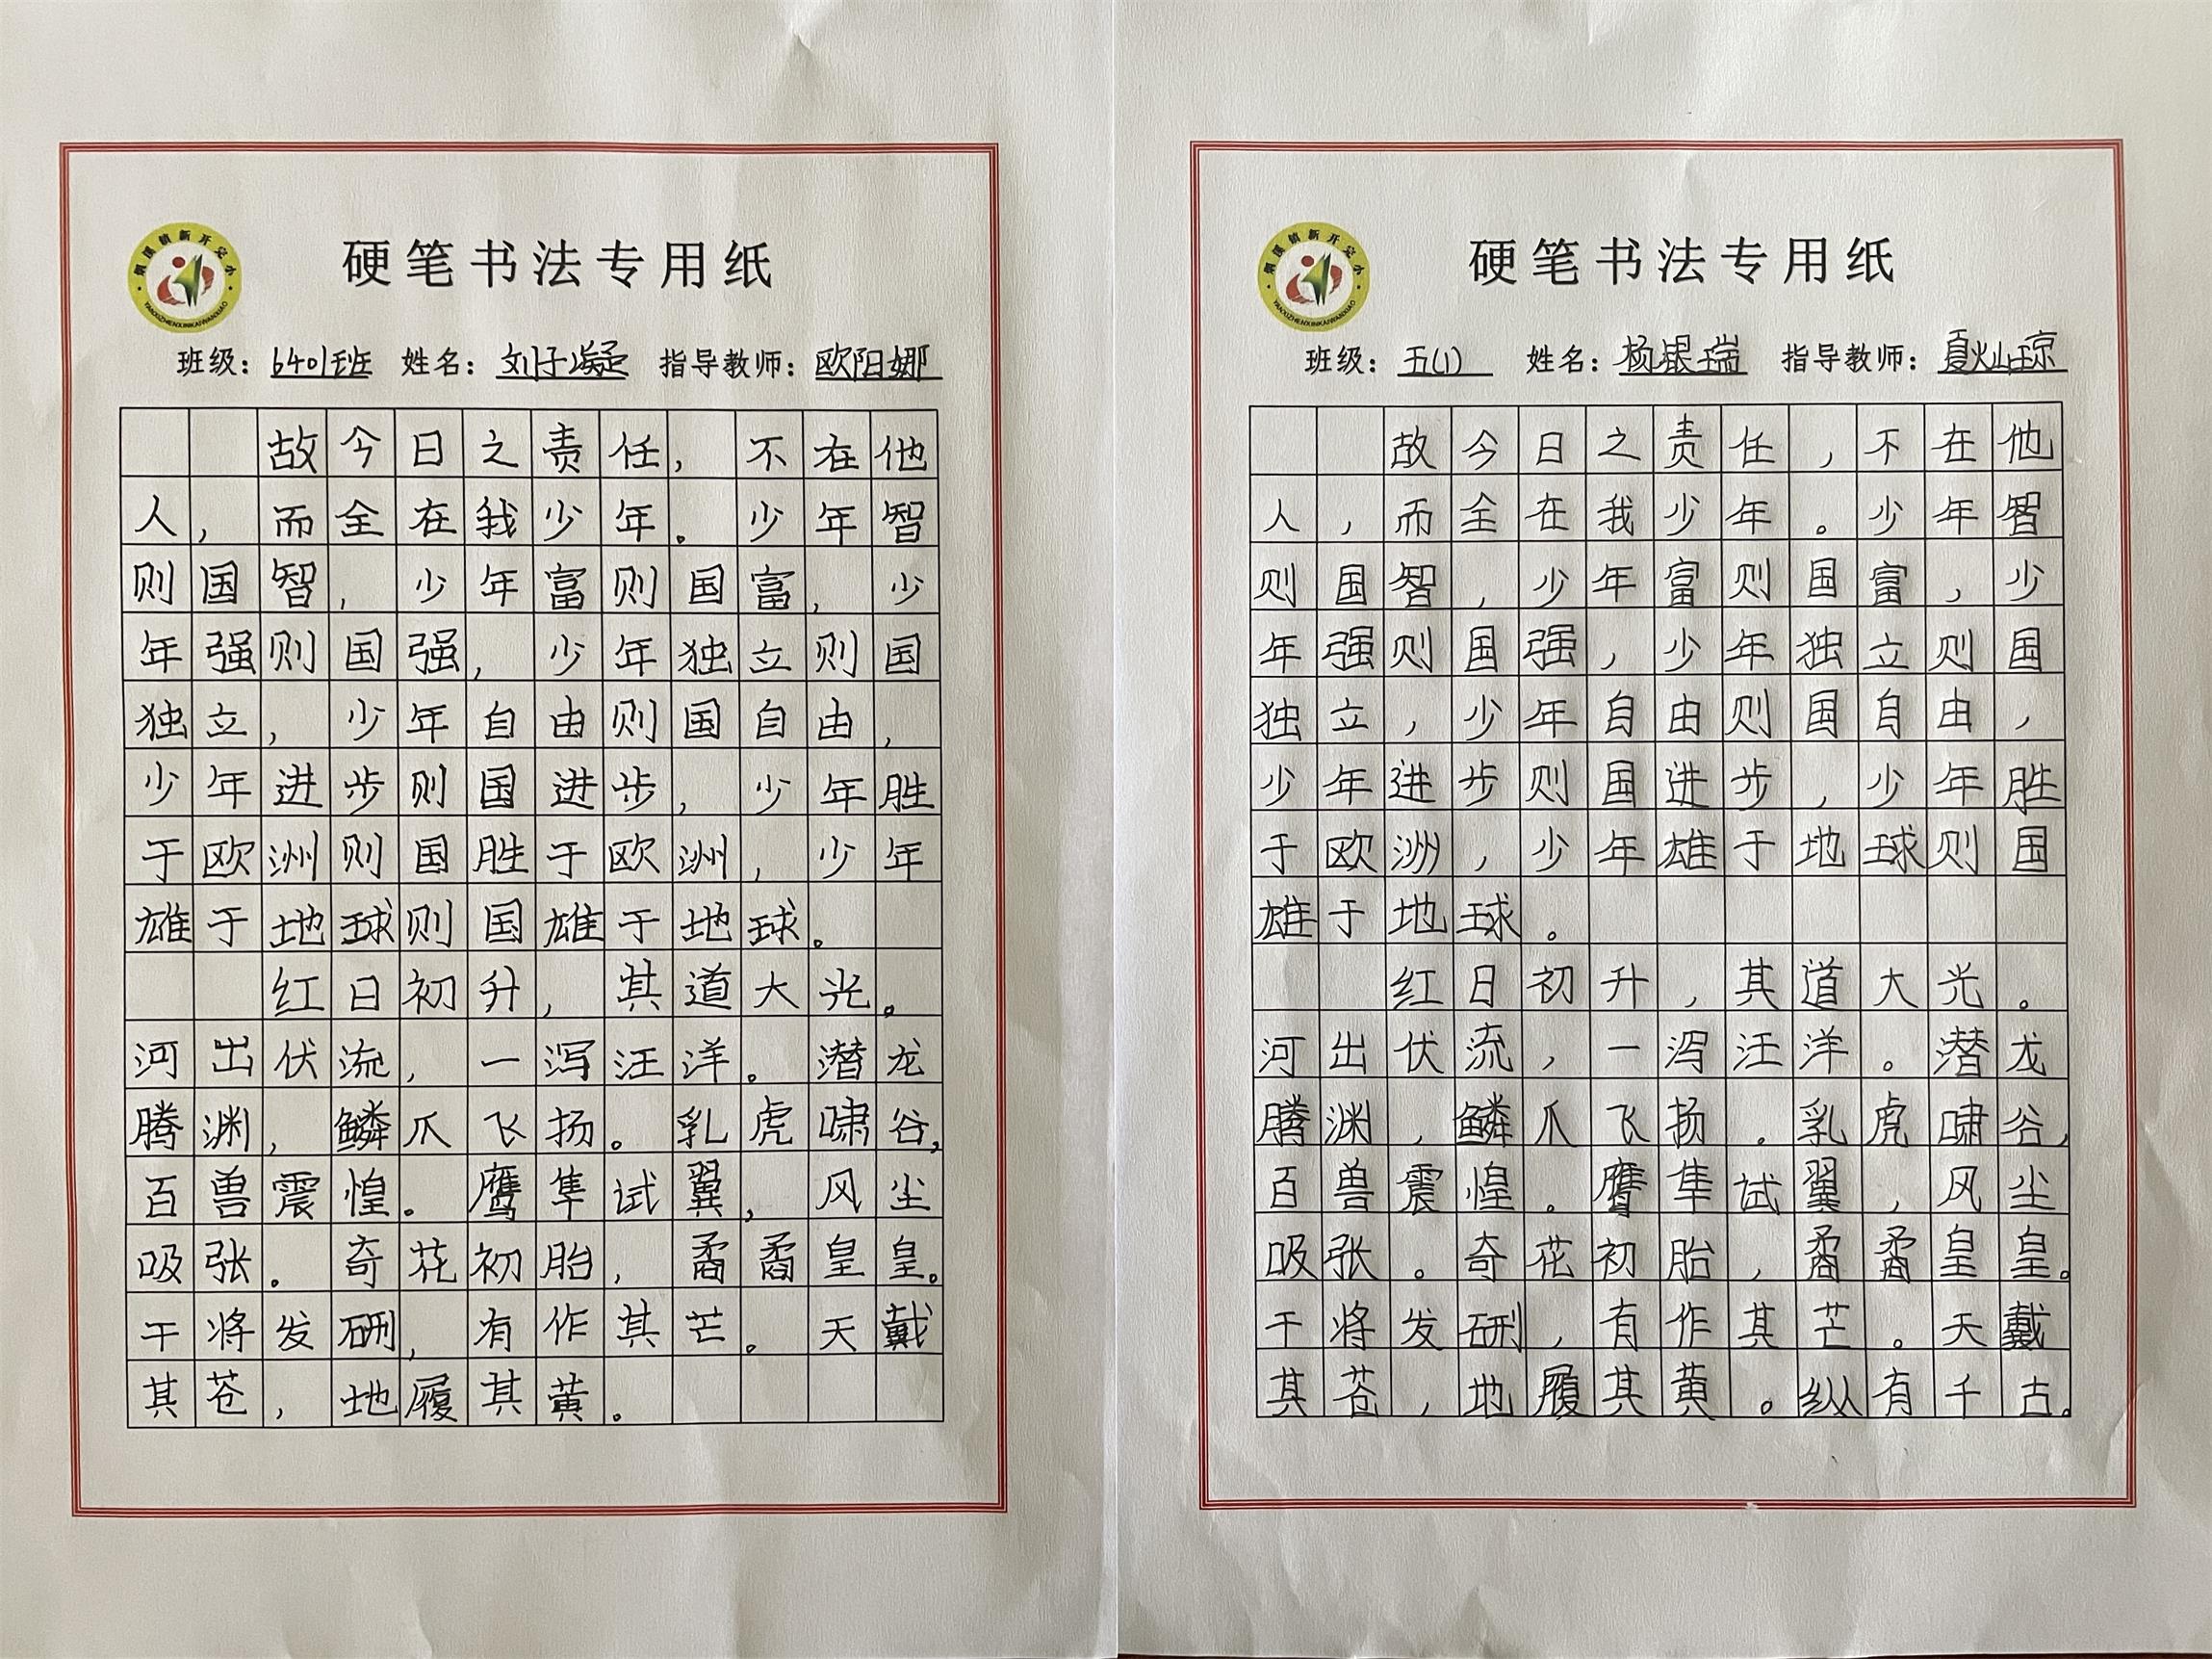 烟溪镇新开完小
YANXIZHENXINKAIWANXIAO
硬笔书法专用纸
班级：6401班 姓名：刘子凝 指导教师：欧阳娜
故今日之责任，不在他
人，而全在我少年。少年智
则国智，少年富则国富，少
年强则国强，少年独立则国
独立，少年自由则国自由，
少年进步则国进步，少年胜
于欧洲则国胜于欧洲，少年
雄于地球则国雄于地球。
红日初升，其道大光。
河出伏流，一泻汪洋。潜龙
腾渊，鳞爪飞扬。乳虎啸谷，
百兽震惶。鹰隼试翼，风尘
吸张。奇花初胎，矞矞皇皇。
干将发硎，有作其芒。天戴
其苍，地履其黄。
烟溪镇新开完小
YANXIZHENXINKAIWANXIAO
硬笔书法专用纸
班级：五(1) 姓名：杨银瑞 指导教师：夏灿琼
故今日之责任，不在他
人，而全在我少年。少年智
则国智，少年富则国富，少
年强则国强，少年独立则国
独立，少年自由则国自由，
少年进步则国进步，少年胜
于欧洲，少年雄于地球则国
雄于地球。
红日初升，其道大光。
河出伏流，一泻汪洋。潜龙
腾渊，鳞爪飞扬。乳虎啸谷，
百兽震惶。鹰隼试翼，风尘
吸张。奇花初胎，矞矞皇皇。
干将发硎，有作其芒。天戴
其苍，地履其黄。纵有千古。